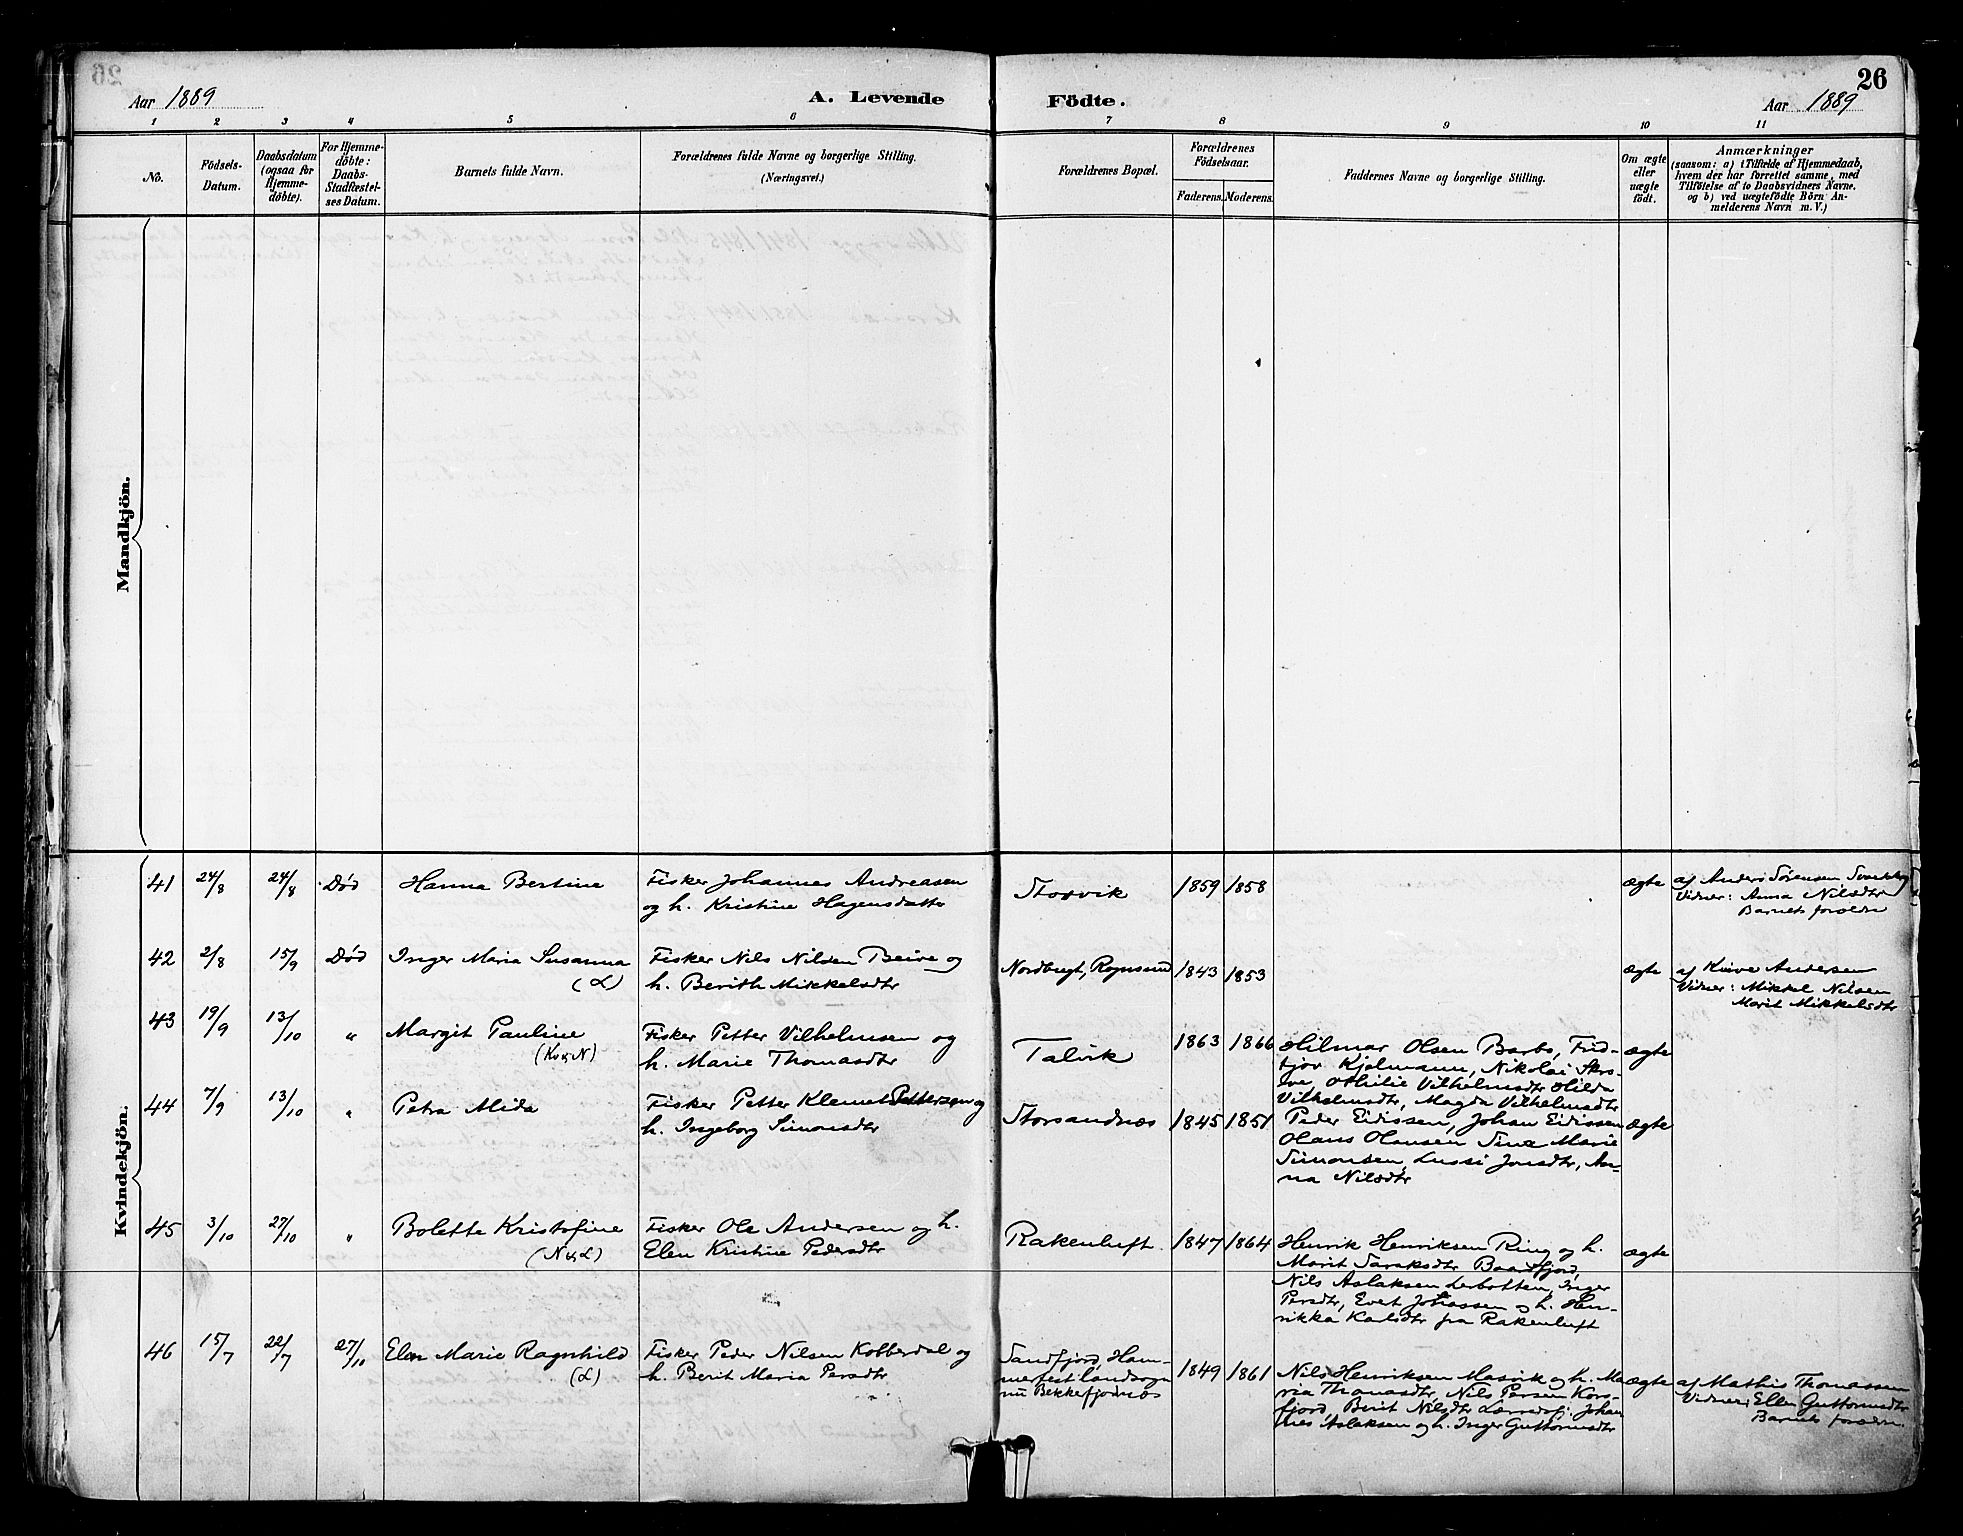 26
Aar 1889
A. Levende
Födte.
Aar 1889
1 2 3 4 5 6 7 8 9 10 11
No.
Födsels-
Datum.
Daabsdatum
(ogsaa for
Hjemme-
döbte).
For Hjemme-
döbte:
Daabs-
Stadfæstel-
ses Datum.
Barnets fulde Navn.
Forældrenes fulde Navne og borgerlige Stilling.
(Næringsvei.)
Forældrenes Bopæl.
Forældrenes
Födselsaar.
Faderens. Moderens.
Faddernes Navne og borgerlige Stilling.
Om ægte
eller
uægte
födt.
Anmærkninger
(saasom: a) i Tilfælde af Hjemmedaab,
hvem der har forrettet samme, med
Tilföielse af to Daabsvidners Navne.
og b) ved uægtefödte Börn An-
melderens Navn m. V.)
Mandkjön.
Kvindekjön.
41 24/8 24/8 Død Hanna Bertine
Fisker Johannes Andreasen
og h. Kristine Hagensdatter
Storvik 1859 1858
ægte
af Anders Sörensen
Vidner: Anna Nilsdtr
Barnets foreldre
42 2/8 15/9 Død Inger Maria Susanna
(L)
Fisker Nils Nilsen Beive og
h. Berith Mikkelsdtr
Nordbugt, Rognsund 1843 1853
ægte
af Andersen
Vidner: Mikkel Nilsen
Marit Mikkelsdtr
43 19/9 13/10 " Margit Pauline
(Kv&N)
Fisker Petter Vilhelmsen og
h. Marie Thomasdtr
Talvik 1863 1866
Hilmar Olsen Barbo, Frid-
tjov Kjelmann, Nikolai
Othilie Vilhelmsdtr Hilda
Vilhelmsdtr, Magda Vilhelmsdtr
ægte
44 7/9 13/10 " Petra Alida
Fisker Petter Klemet Pettersen og
h. Ingeborg Simonsdtr
Storsandnæs 1845 1851
Peder Eidissen, Johan Eidissen
Olaus Olausen Sina Marie
Simonsen, Lussi Jonsdtr, An-
na Nilsdtr
ægte
45 3/10 27/10 " Bolette Kristofine
(N&L)
Fisker Ole Andersen og h.
Elen Kristine Pedersdtr
Rakenluft. 1847 1864
Henrik Henriksen Ring og h.
Marit Saraksdtr Baardfjord,
Nils Aslaksen Lerbotten, Inger
Persdtr, Evert Johassen og h. Hen-
rikka Karlsdtr fra Rakenluft
ægte
46 15/7 22/7 27/10 Elen Marie Ragnhild
(L)
Fisker Peder Nilsen Kobberdal og
h. Berit Maria Persdtr
Sandfjord, Ham-
merfest landsogn
nu Bekkefjordnes
1849 1861
Nils Henriksen Masvik og h. Ma-
ria Thomasdtr, Nils Persen Kors-
fjord, Berit Nilsdtr Johan-
nes Aslaksen og h. Inger Guttormsdtr
ægte
af Mathis Thomassen
Vidner: Ellen Guttormsdtr
Barnets forældre.